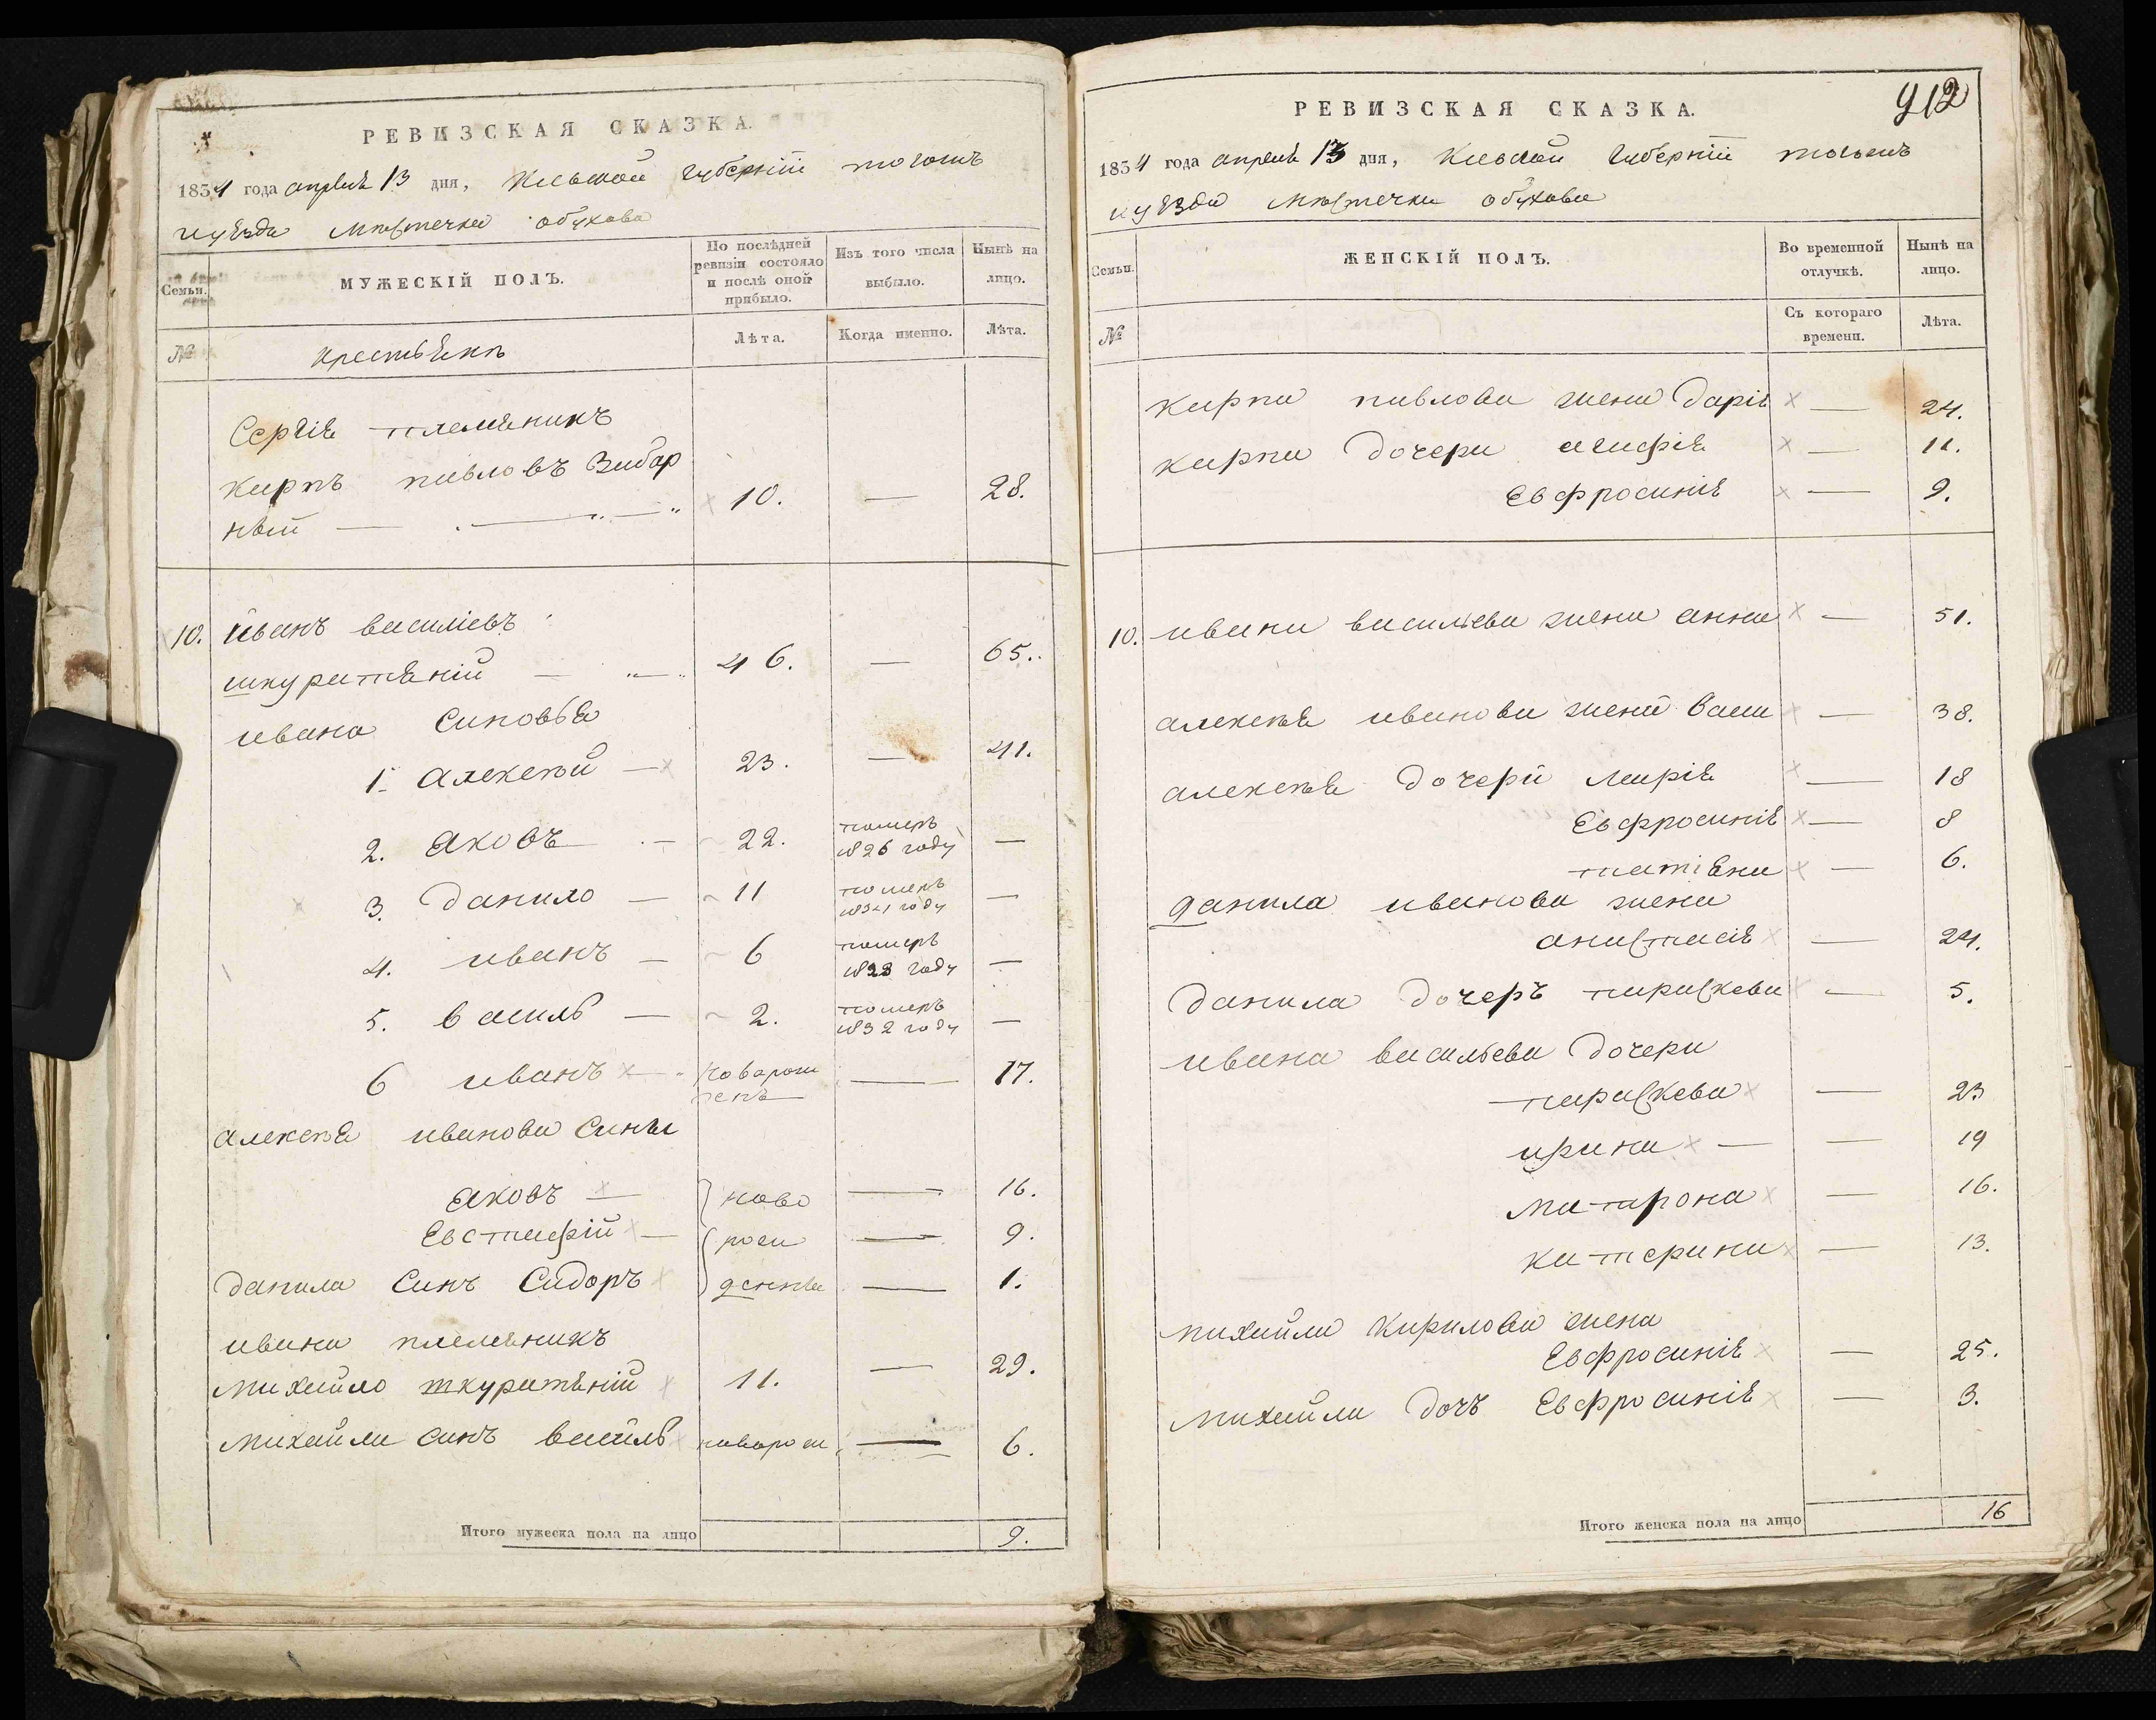 РЕВИЗСКАЯ СКАЗКА.
1834 года апреля 13 дня, Киевской губернiи тогожъ
иуѣзда мѣстечка обухова
Семьи.
МУЖЕСКІЙ ПОЛЪ.
По послѣдней ревизіи состояло и послѣ оной прибыло.
Изъ того числа выбыло.
Нынѣ на лицо.
№
крестьянъ
Лѣта.
Когда именно.
Лѣта.
Сергiя племяникъ
карпъ павловъ Забар
ный — 10. — 28.
10. иванъ василіевъ
шкуратяній — 46. — 65.
ивана Синовья
1. алексѣй — 23. — 41.
2. яковъ — 22. померъ 1826 году —
3. данило — 11 померъ 1831 году —
4. иванъ — 6 померъ 1828 году —
5. василь — 2. померъ 1832 году —
6 иванъ — новорож денъ — 17.
алексѣя иванова Сины
яковъ — ново — 16.
Евстафій — рож — 9.
данила Синъ Сидоръ денны — 1.
ивана племяникъ
михайло шкуратяній 11. — 29.
михайла синъ василь новорож — 6.
Итого мужеска пола на лицо 9.
912
РЕВИЗСКАЯ СКАЗКА.
1834 года апреля 13 дня, Киевской губернiи тогожъ
иуѣзда мѣстечка обухова
Семьи.
ЖЕНСКІЙ ПОЛЪ.
Во временной отлучкѣ.
Нынѣ на лицо.
№
Съ котораго времени.
Лѣта.
карпа павлова жена дарія — 24.
карпа дочери агафія — 11.
Евфросинія — 9.
10. ивана васильева жена анна — 51.
алексѣя иванова жена васи — 38.
алексѣя дочери марія — 18
Евфросинія — 8
татіяна — 6.
данила иванова жена
анастасія — 24.
данила дочеръ параскева — 5.
ивана василева дочери
параскева — 23
ирина — 19
матрона — 16.
катерина — 13.
михайла кирилова жена
Евфросинія — 25.
михайла дочъ Евфросинія — 3.
Итого женска пола на лицо 16